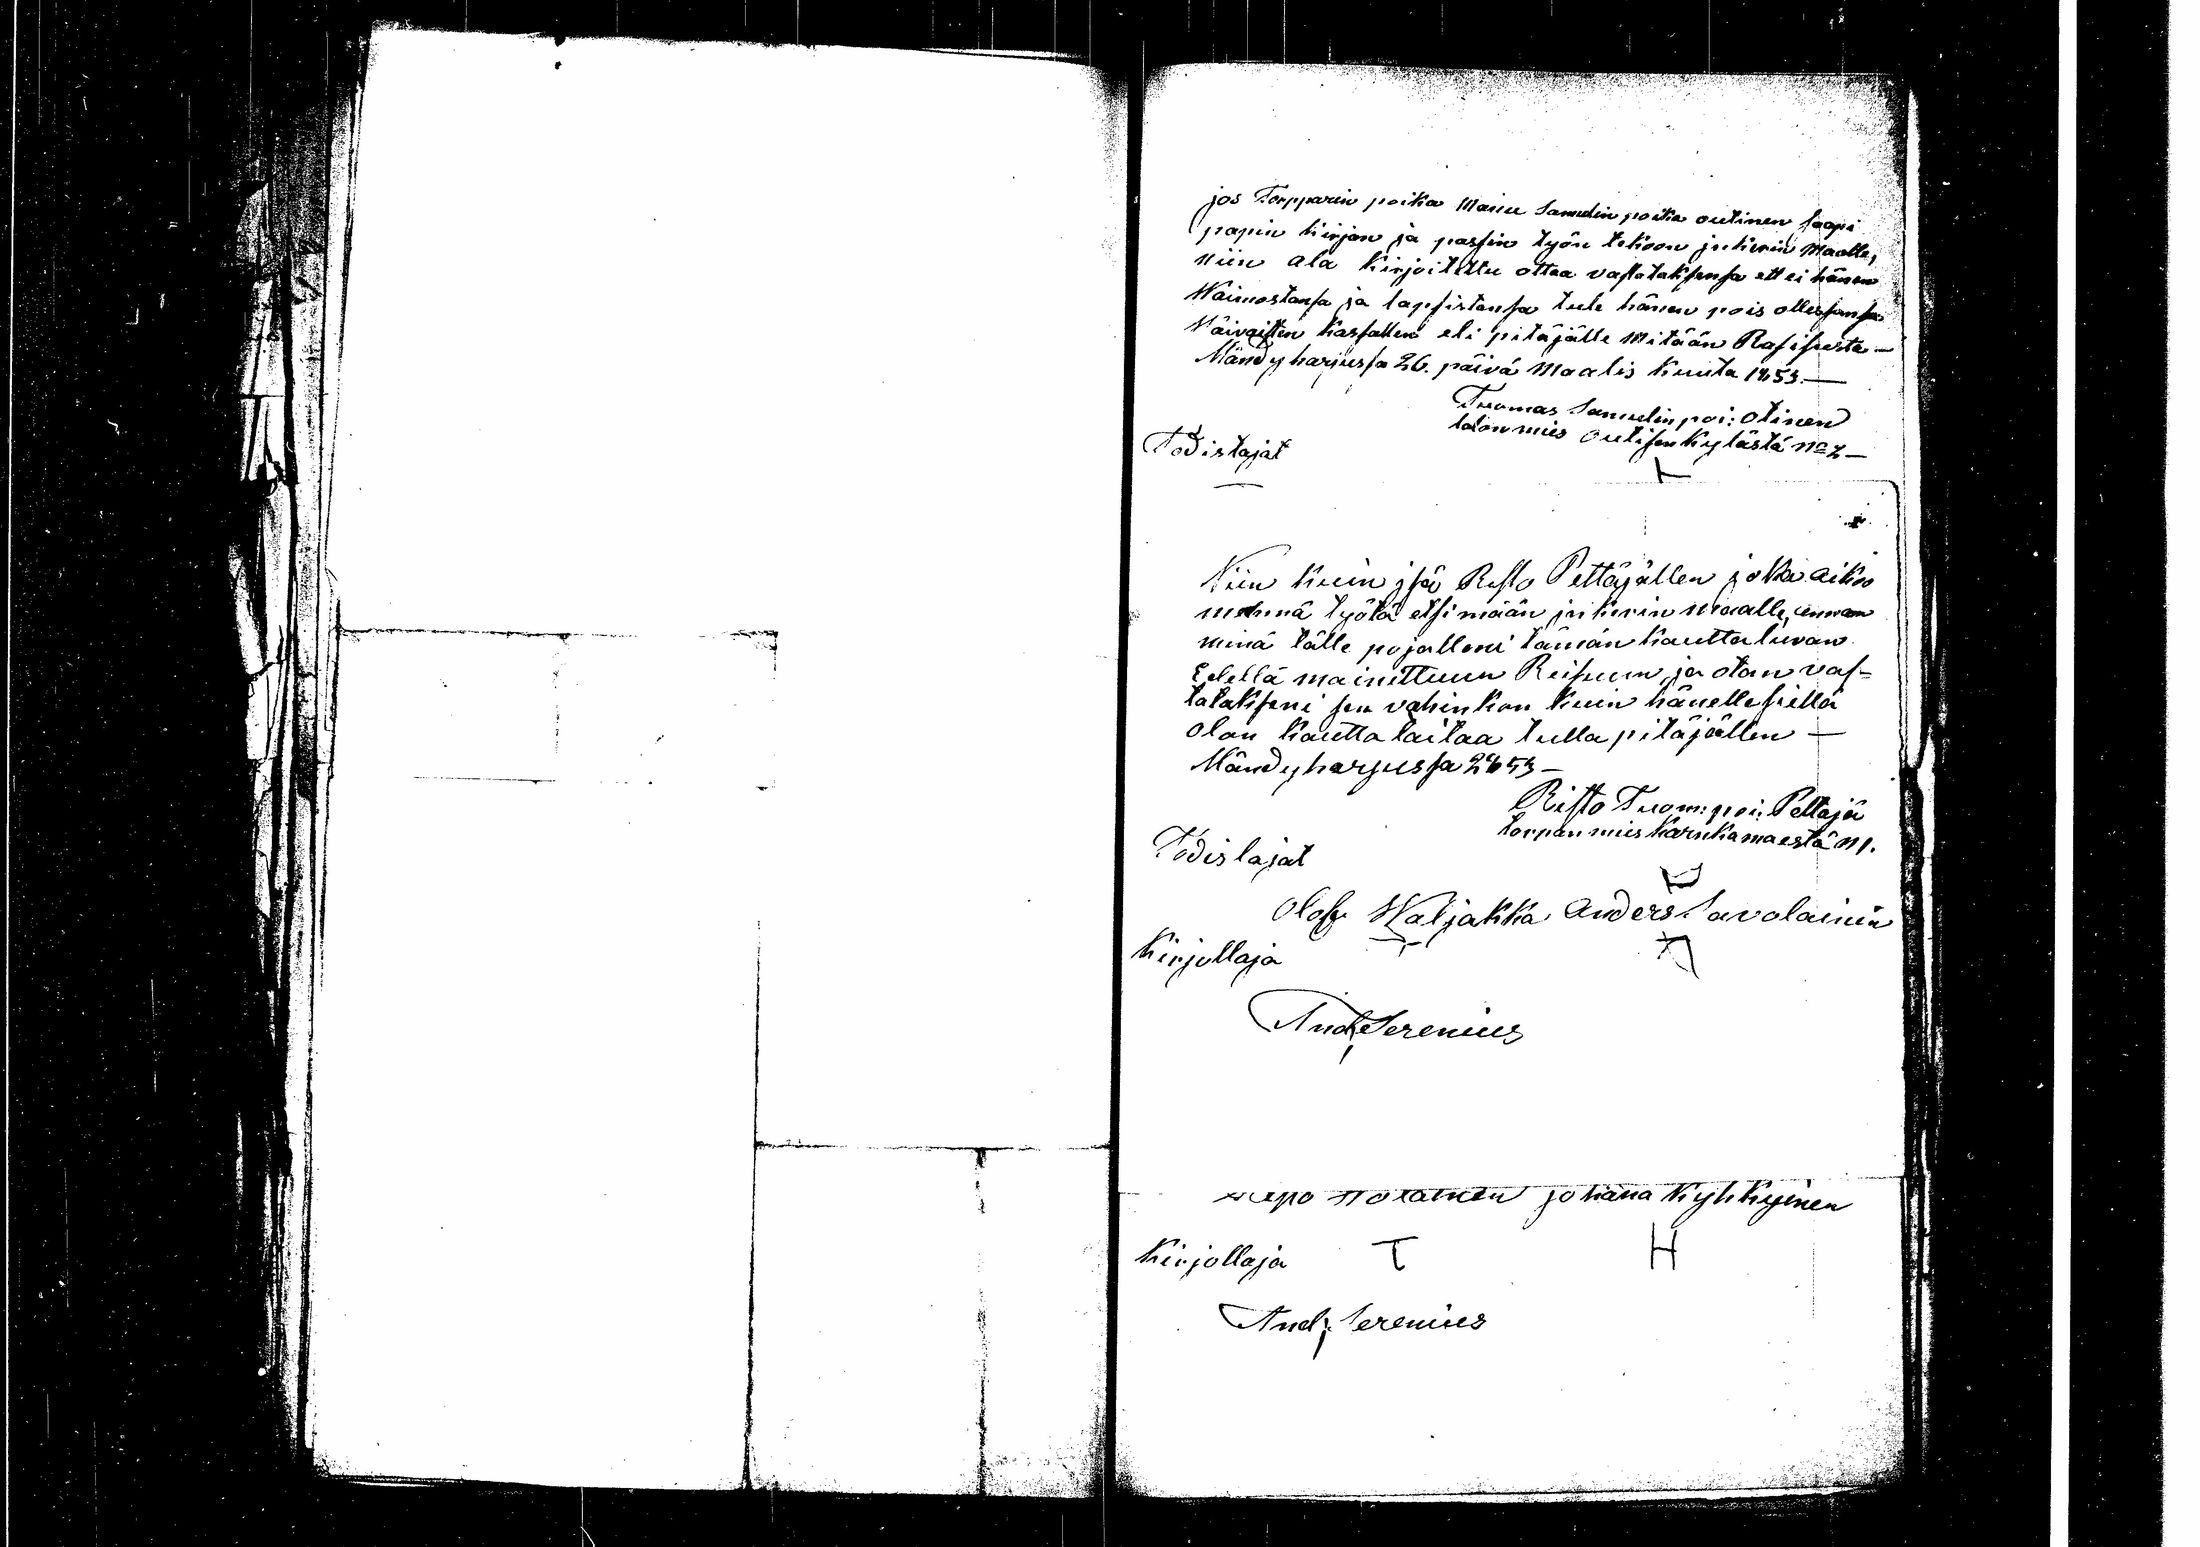 jos Torpparin poika Manu Samuelin poika outinen saapi
papin kirjan ja passin työn tekoon inkerin maalle,
niin ala kirjoitettu ottaa vastataksensa ett ei hänen
Waimostansa ja lapsistansa tule hänen pois ollessansa
Wäivaisten kassallen eli pitäjälle mitään Rasisusta —
Mändyharjussa 26. päivä maalis kuuta 1853. —
Tuomas Samuelin poi: Otinen
talon mies outisen kylästä No 2 —
Todistajat
Niin kuin jsä Risto Pettäjällen joka aikoo
mennä työtä etsimään inkerin maalle, annan
minä tälle pojalleni tämän kautta luvan
Edellä mainittuun Reisuun, ja otan vas-
tatakseni sen vahinkon kuin hänelle siellä
olon kautta taitaa tulla pitäjällen —
Mändyharjussa 2⁴/₆53 —
Risto Tuom: poi: Pettäjä
torpan mies Karnkamaestä N 1.
Todistajat
Olofr Waljakka Anders Savolainen
Kirjottaja
And: Serenius
johana Kyhkynen
Kirjottaja T H
And: Serenius